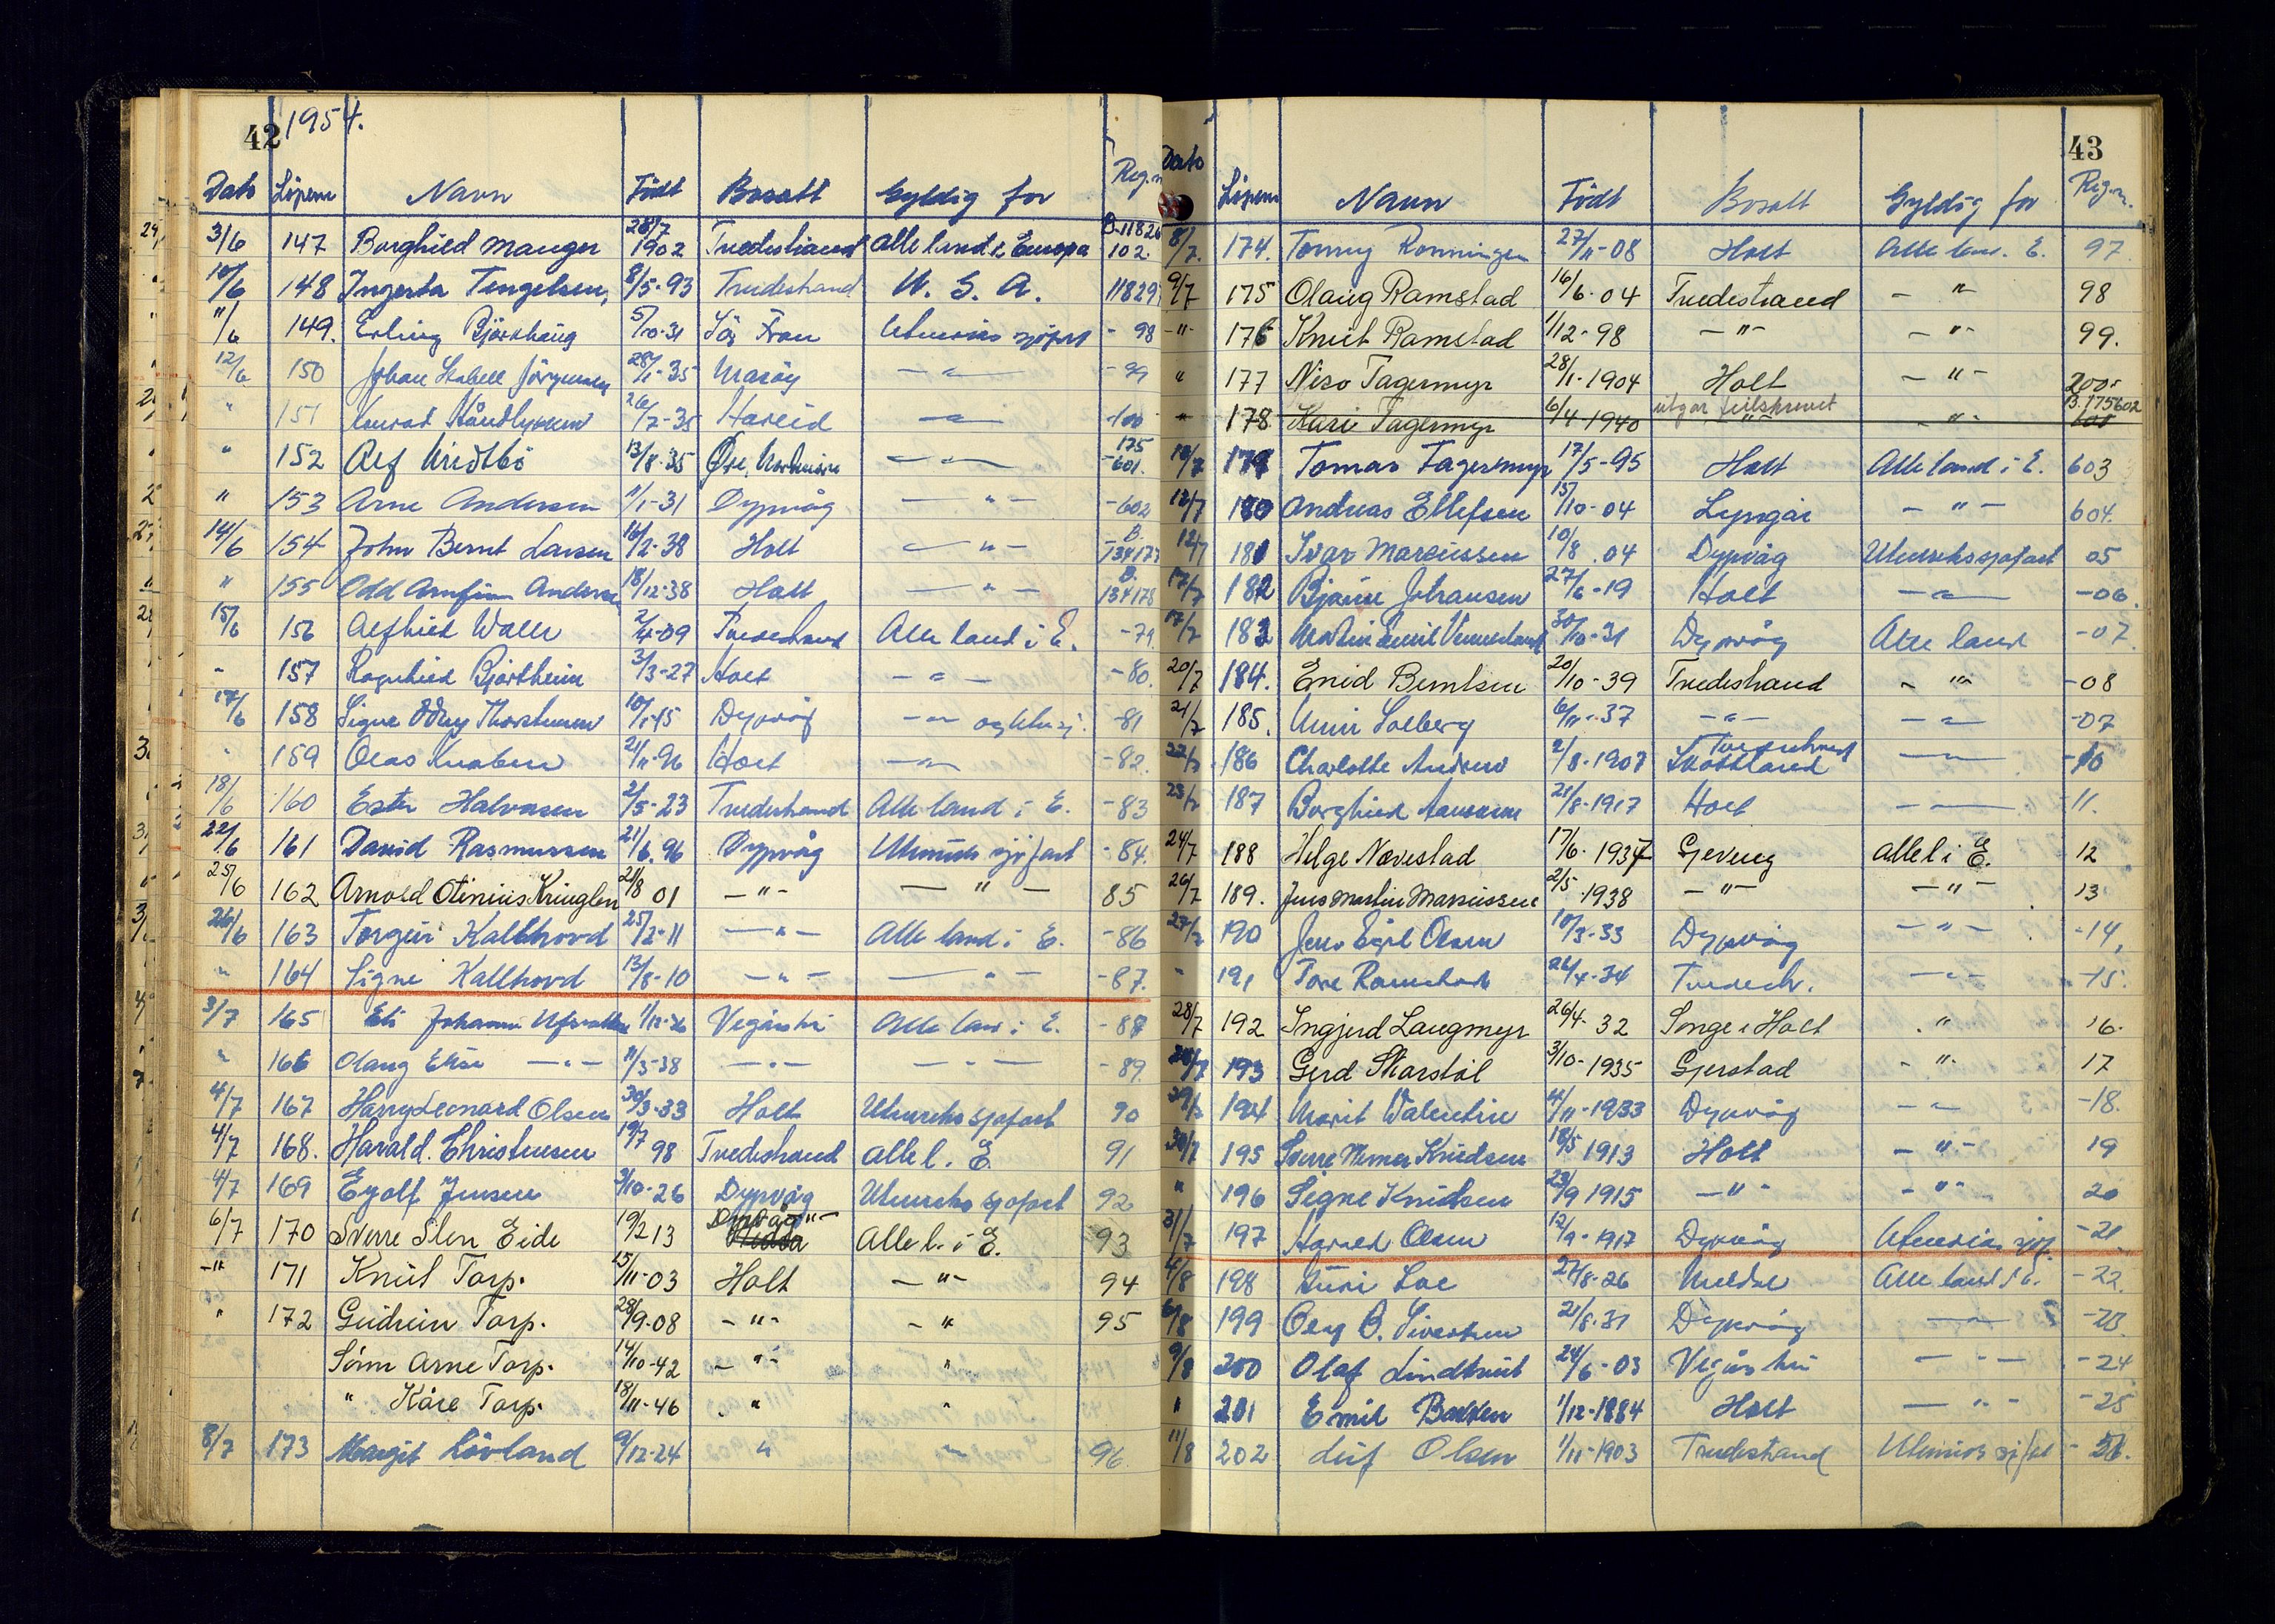 42 1954.
Dato Löpenr Navn Födt Bosatt Gyldig for Reg.n
3/6 147 Borghild Manger 28/7 1902 Tvedestrand Alle land i Europa B-11826 102.
10/6 148 Ingerta Tengelsen, 8/5-93 Tvedestrand U. S. A. 11829
11/6 149. Erling Björkhaug 5/10-31 Sör Fron Utenriks sjöfart - 98
12/6 150 Johan Stabell Jörgensen 28/1-35 - " - - 99
" 151 Konrad 26/7-35 Hareid - " - -100
" 152 Alf Midtbö 13/8-35 Öre, Nordmöre - " - 175 -601.
" 153 Arne Andersen 11/1-31 Dypvåg - " - -602
14/6 154 John Bernt Larsen 16/2-38 Holt - " - B. 134177
" 155 Odd Arnfinn Andersen 18/12-38 Holt - " - B. 134178
15/6 156 Alfhild Waller 2/4-09 Tvedestrand Alle land i E. -79
- 157 Ragnhild Bjortheim 3/3-27 Holt - " - -80.
17/6 158 Signe Odny Thorstensen 10/1-15 Dypvåg - " - og Utenrj. -81
" 159 Olav Knaben 21/11-96 Holt - " - -82
18/6 160 Ester Halvorsen 2/5-23 Tvedestrand Alle land i E. -83
22/6 161 David Rasmussen 21/6.96 Dypvåg Utenriks sjöfart -84.
25/6 162 Arnold Otinius Kringlen 21/8 01 - " - - " - 85
26/6 163 Torgeir Kallhovd 25/2-11 - " - Alle land i E. -86
" 164 Signe Kallhovd 13/8-10 - " - - " - -87.
3/7 165 Eli Johanne Ufsvatten 1/12-26 Vegårshei Alle land i E. -88
" 166 Olaug Elise - " - 11/3-38 - " - - " - -89.
4/7 167 Harry Leonard Olsen 30/3-33 Holt Utenriks sjøfart 90
4/7 168. Harald. Christensen 19/7 98 Tvedestrand alle l. E. 91
4/7 169 Eyolf Jensen 3/10-26 Dypvåg Utenriks sjøfart 92
6/7 170 Sverre Sten Eide 19/2 13 Dypvåg " - Alle l. i E. 93
-" 171 Knut Torp. 15/11-03 Holt - " - 94
" 172 Gudrun Torp. 28/9-08 - " - - " 95
Sönn Arne Torp. 14/10-42 - " - "
" Kåre Torp. 18/11-46 . " "
8/7 173 Margit Lövland 9/12-24 " " 96.
43
Dato Löpenr Navn Födt Bosatt Gyldig for Reg.n.
8/7. 174. Tomy Rønningen 27/11-08 Holt Alle lan. E. 97
9/7 175 Olaug Ramstad 16/6-04 Tvedestrand - " 98
-"- 176 Knut Ramstad 1/12-98 - " - - " - 99.
" 177 Niso Fagermyr 28/1-1904 Holt - " - 200-
" 178 Kari Fagermyr 6/4-1940 utgår feilskrevet - " - B.175602
10/7 179 Tomas Fagermyr 17/5-95 Holt Alle land i E. 603
12/7 180 Andreas Ellefsen 15/10-04 Lyngør - " - 604.
12/7 181 Ivar Marcussen 10/8.04 Dypvåg Utenriks sjøfart 05
17/7 182 Bjarne Johansen 27/6-19 Holt - " - -06.
17/7 183 Martin Emil Vennesland 30/10-31 Dypvåg Alle land -07.
20/7 184. Enid Berntsen 20/10-39 Tvedestrand - " - -08
21/7 185. Unni Solberg 6/11-37 - " - - " - -07
22/7 186 Charlotte Andrew 2/8-1907 Skottland - " - -10
23/7 187 Borghild Aanonsen 21/8-1917 Holt - " - 11.
24/7 188 Helge Nævestad 17/6-1937 Gjeving alle l i E. 12
26/7 189. Jens Martin Marcussen 2/5 1938 - " - - " - 13
27/7 190 Jens Egil Olsen 10/3-33 Dypvåg - " - -14,
- 191 Tore Ramstad 26/4-34 Tvedestr. - " - -15.
28/7 192 Ingjerd Langmyr 26/4-32 Songe i Holt . " 16.
28/7 193 Gerd Skarstöl 3/10-1935 Gjerstad - " - 17
29/7 194 Marit Valentin 4/11-1933 Dypvåg - " - -18.
30/7 195 Sverre Werner Knudsen 18/5 1913 Holt - " - 19
" 196 Signe Knudsen 23/9 1915 - " - - " - 20
31/7 197 Harald Olsen 12/9-1917 Dypvåg Utenriks sjöf. -21
4/8 198 Turi Loe 27/8-26 Meldal Alle land i E. -22.
6/8 199 Olav O. Sivertsen 21/8-31 Dypvåg - " - -23.
9/8 200 Olaf Lindtveit 24/6-03 Vegårshei - " - -24
" 201 Emil Bakken 1/12-1884 Holt - " - -25
11/8 202 Leif Olsen 1/11-1903 Tvedestrand Utenriks sjöfart - 26.